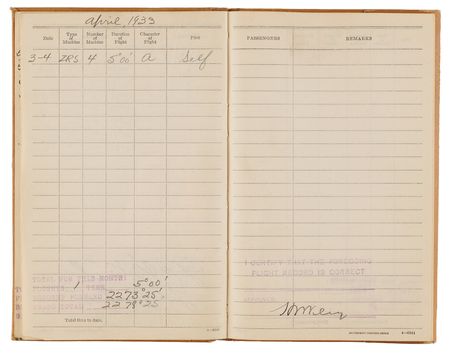 April, 1933
Date Type of Machine Number of Machine Duration of Flight Character of Flight Pilot PASSENGERS REMARKS
3-4 ZRS 4 5°00' A Self
TOTAL FOR THIS MONTH:
FLIGHTS, 1 TIME 5°00'
BROUGHT FORWARD 2273°25'
GRAND TOTAL 2278°25
Total time to date,
I CERTIFY THAT THE FOREGOING
FLIGHT RECORD IS CORRECT